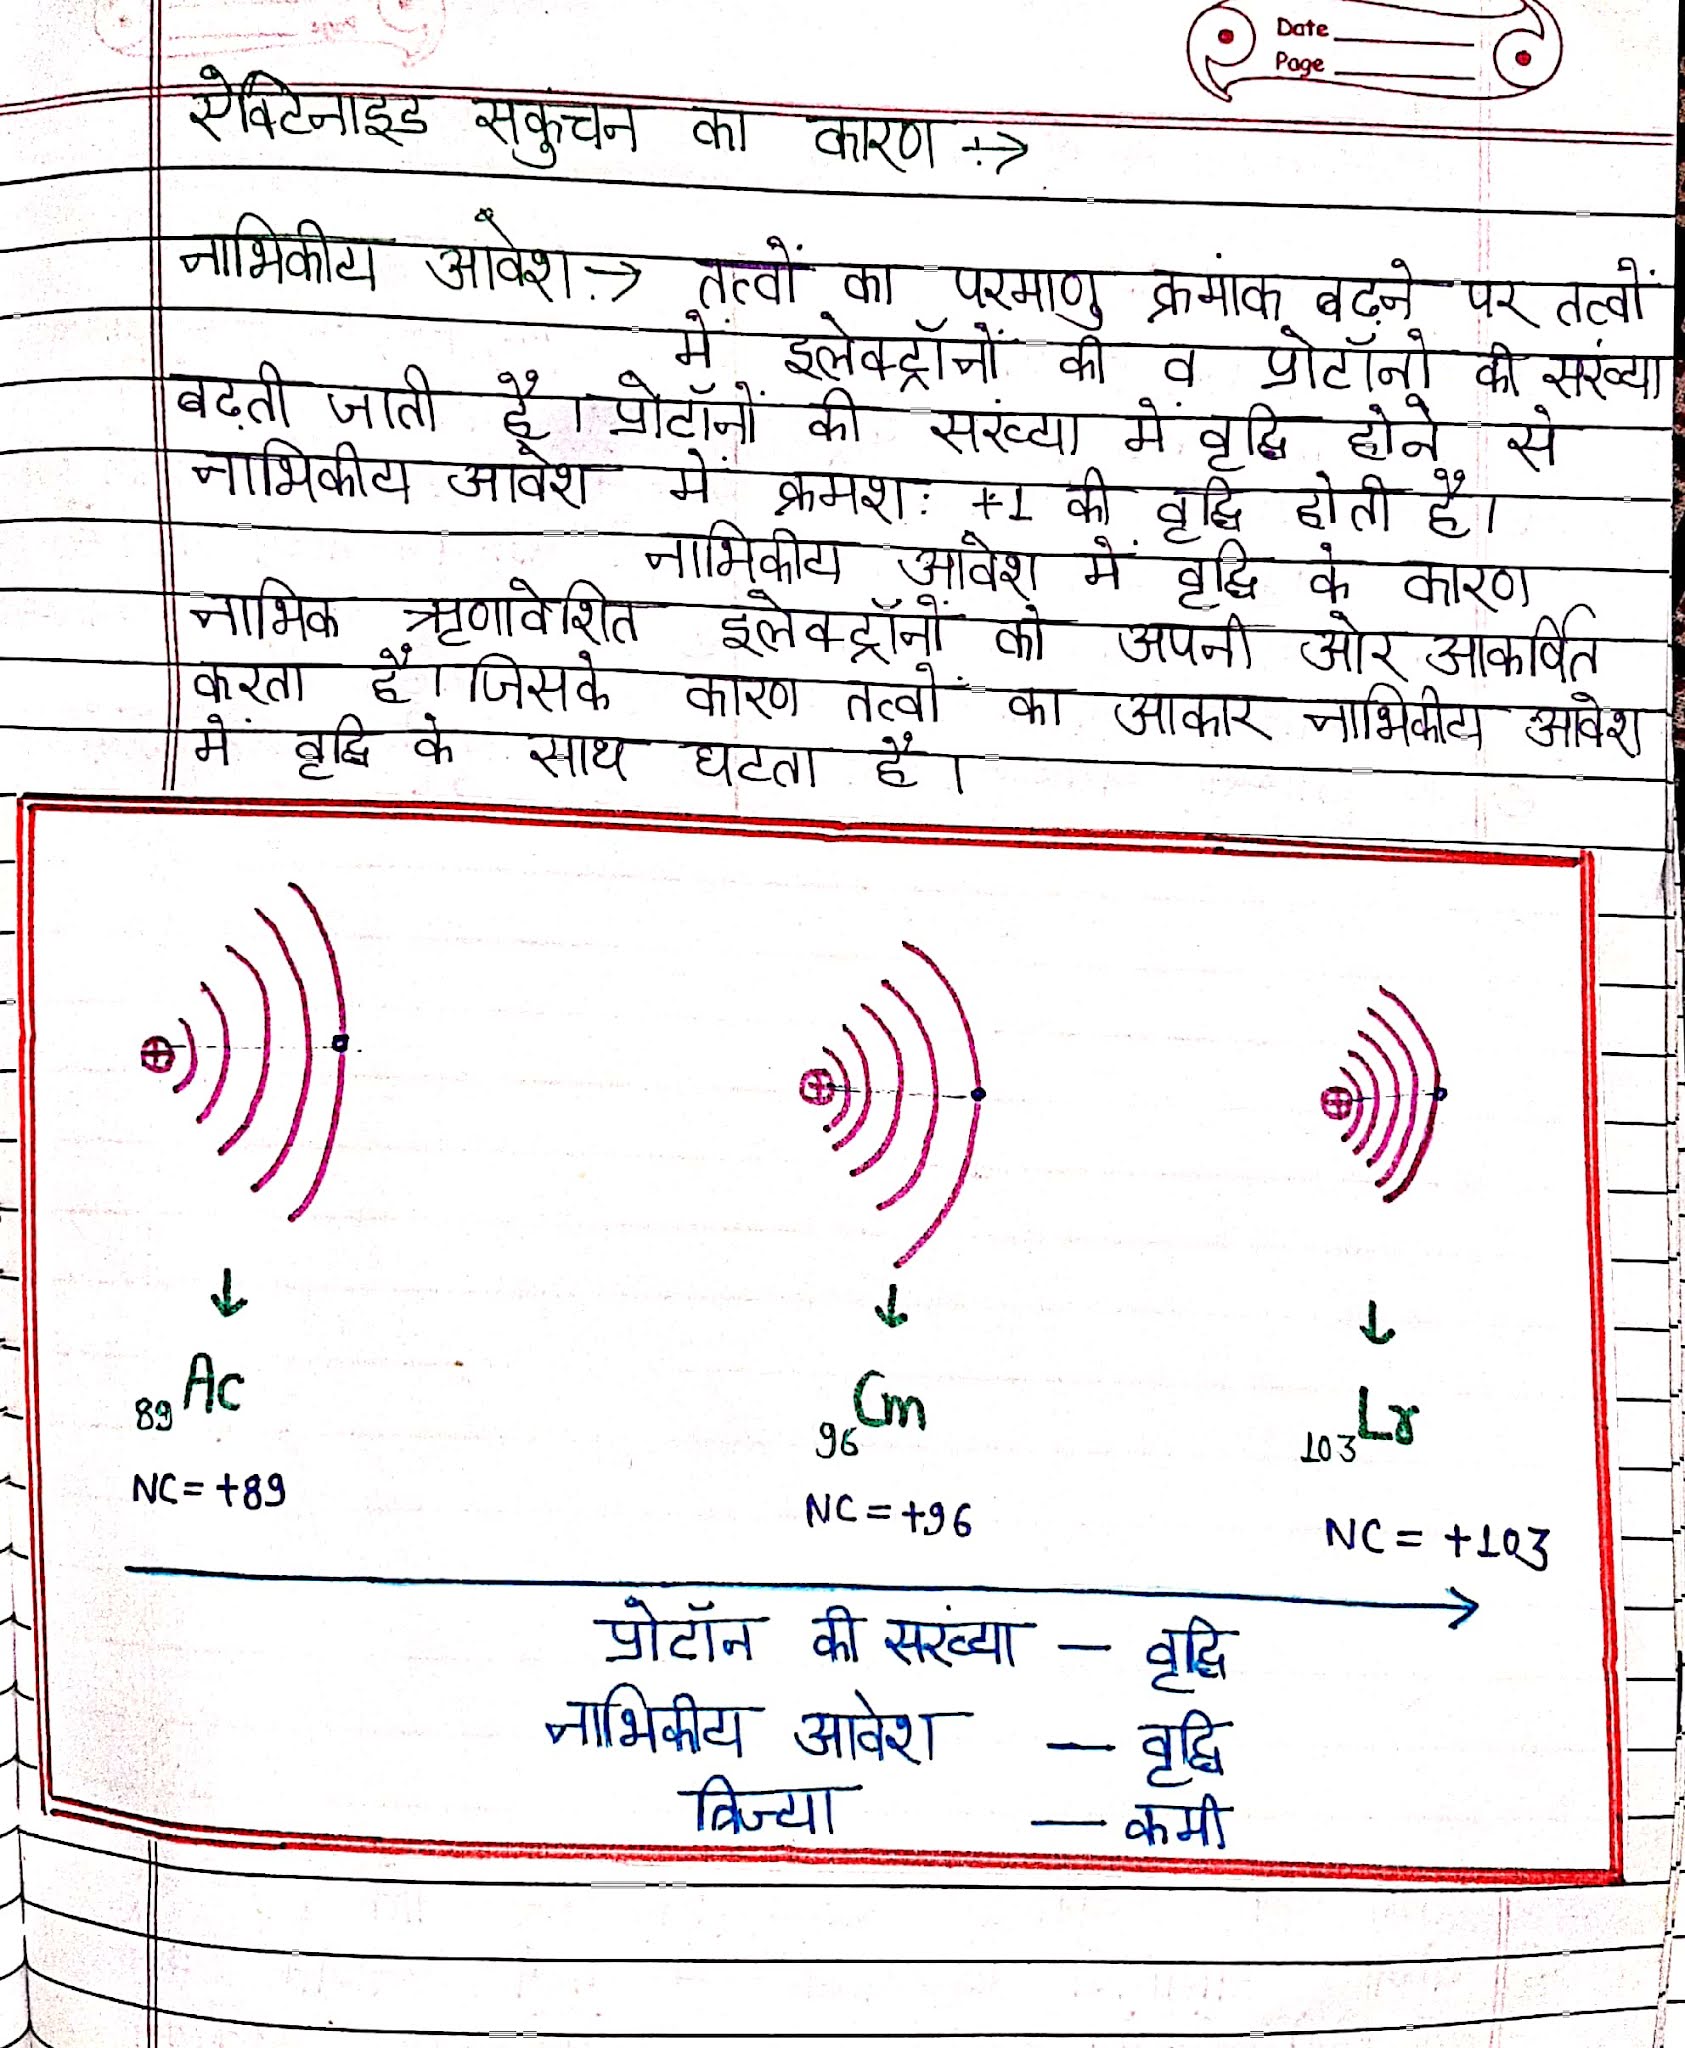 Date
Page
ऐक्टिनाइड सकुंचन का कारण ÷→
नाभिकीय आवेश ÷→ तत्वों का परमाणु क्रमांक बढ़ने पर तत्वों
में इलेक्ट्रॉनों की व प्रोटॉनो की सरंख्या
बढ़ती जाती है। प्रोटॉनों की सरंख्या में वृद्धि होने से
नाभिकीय आवेश में क्रमश: +1 की वृद्धि होती है।
नाभिकीय आवेश में वृद्धि के कारण
नाभिक ऋणावेशित इलेक्ट्रॉनों को अपनी ओर आकर्षित
करता है। जिसके कारण तत्वों का आकार नाभिकीय आवेश
में वृद्धि के साथ घटता है।
89Ac 96Cm 103Lr
NC = +89 NC = +96 NC = +103
प्रोटॉन की सरंख्या — वृद्धि
नाभिकीय आवेश — वृद्धि
त्रिज्या — कमी